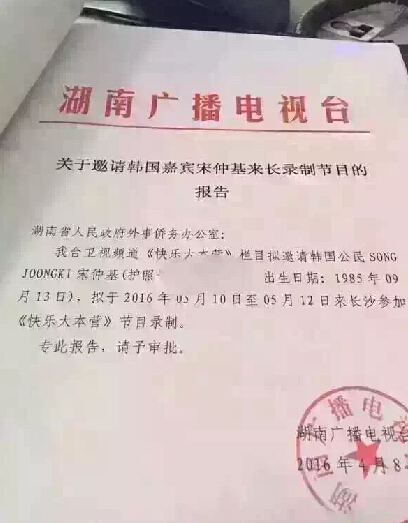 湖南广播电视台
关于邀请韩国嘉宾宋仲基来长录制节目的
报告
湖南省人民政府外事侨务办公室:
我台卫视频道《快乐大本营》栏目拟邀请韩国公民SONG
JOONGKI宋仲基(护照 出生日期:1985年09
月13日),拟于2016年05月10日至05月12日来长沙参加
《快乐大本营》节目录制。
专此报告,请予审批。
湖南广播电视台
2016年4月8
湖南广播电